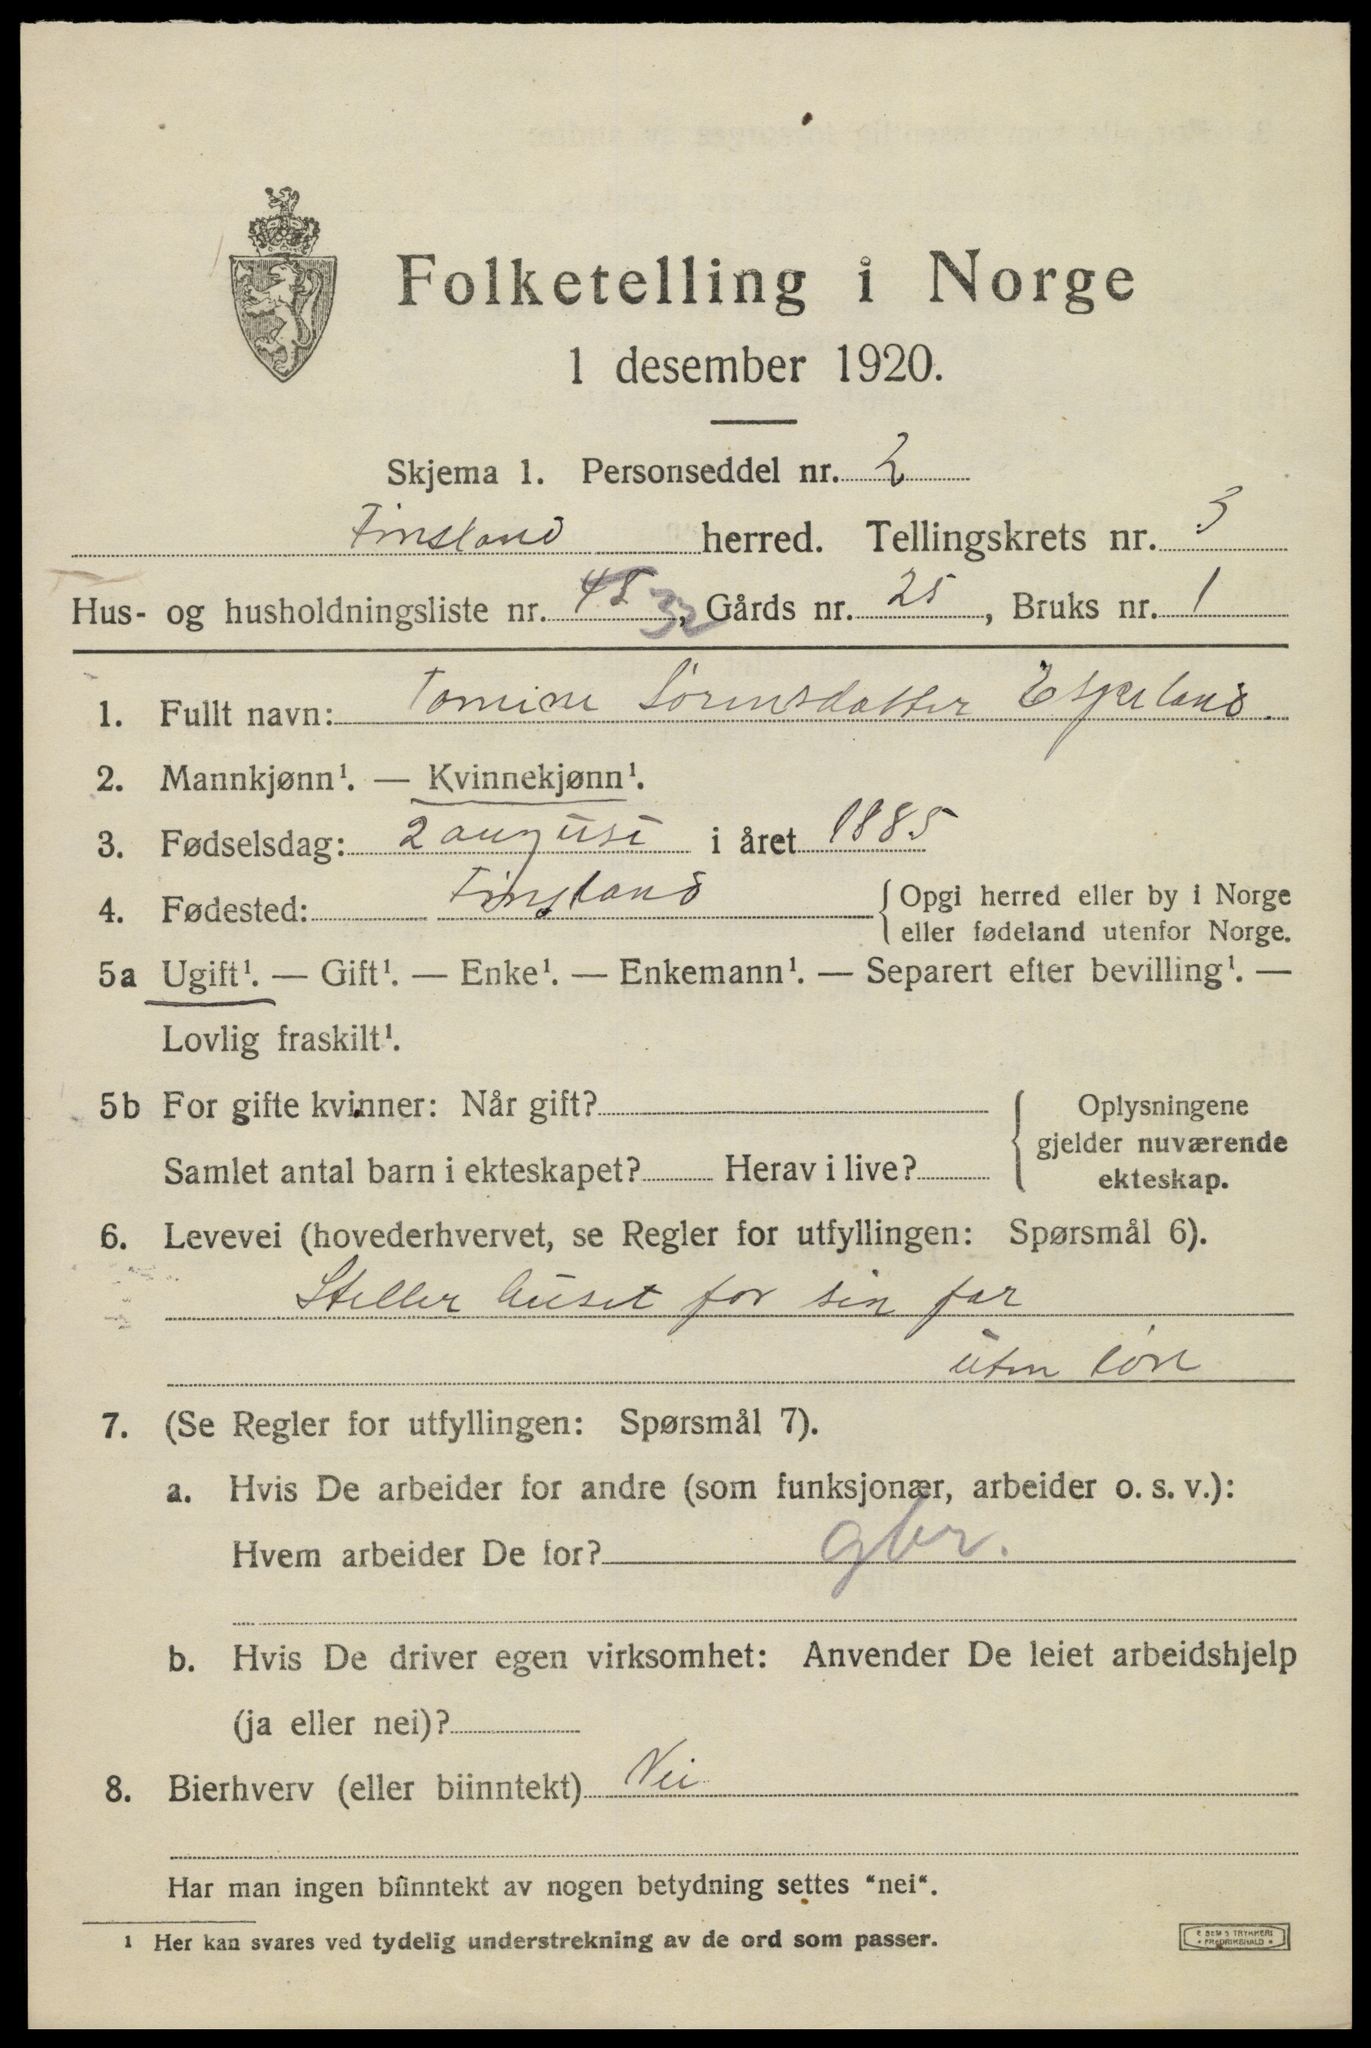 Folketelling i Norge
1 desember 1920.
Skjema 1. Personseddel nr. 2
Finsland herred. Tellingskrets nr. 3
Hus- og husholdningsliste nr. 48 32, Gårds nr. 25, Bruks nr. 1
1. Fullt navn: Tomine Sørensdatter Espeland.
2. Mannkjønn¹. — Kvinnekjønn¹.
3. Fødselsdag: 2 august i året 1885
4. Fødested: Finsland { Opgi herred eller by i Norge
eller fødeland utenfor Norge.
5a Ugift¹. — Gift¹. — Enke¹. — Enkemann¹. — Separert efter bevilling¹. —
Lovlig fraskilt¹.
5b For gifte kvinner: Når gift? { Oplysningene
gjelder nuværende
Samlet antal barn i ekteskapet? Herav i live? ekteskap.
6. Levevei (hovederhvervet, se Regler for utfyllingen: Spørsmål 6).
Steller huset for sin far
uten løn
7. (Se Regler for utfyllingen: Spørsmål 7).
a. Hvis De arbeider for andre (som funksjonær, arbeider o. s. v.):
Hvem arbeider De for? gbr.
b. Hvis De driver egen virksomhet: Anvender De leiet arbeidshjelp
(ja eller nei)?
8. Bierhverv (eller biinntekt) Nei
Har man ingen biinntekt av nogen betydning settes "nei".
¹ Her kan svares ved tydelig understrekning av de ord som passer.
E SEM'S TRYKKERI
* FREDRIKSHALD *